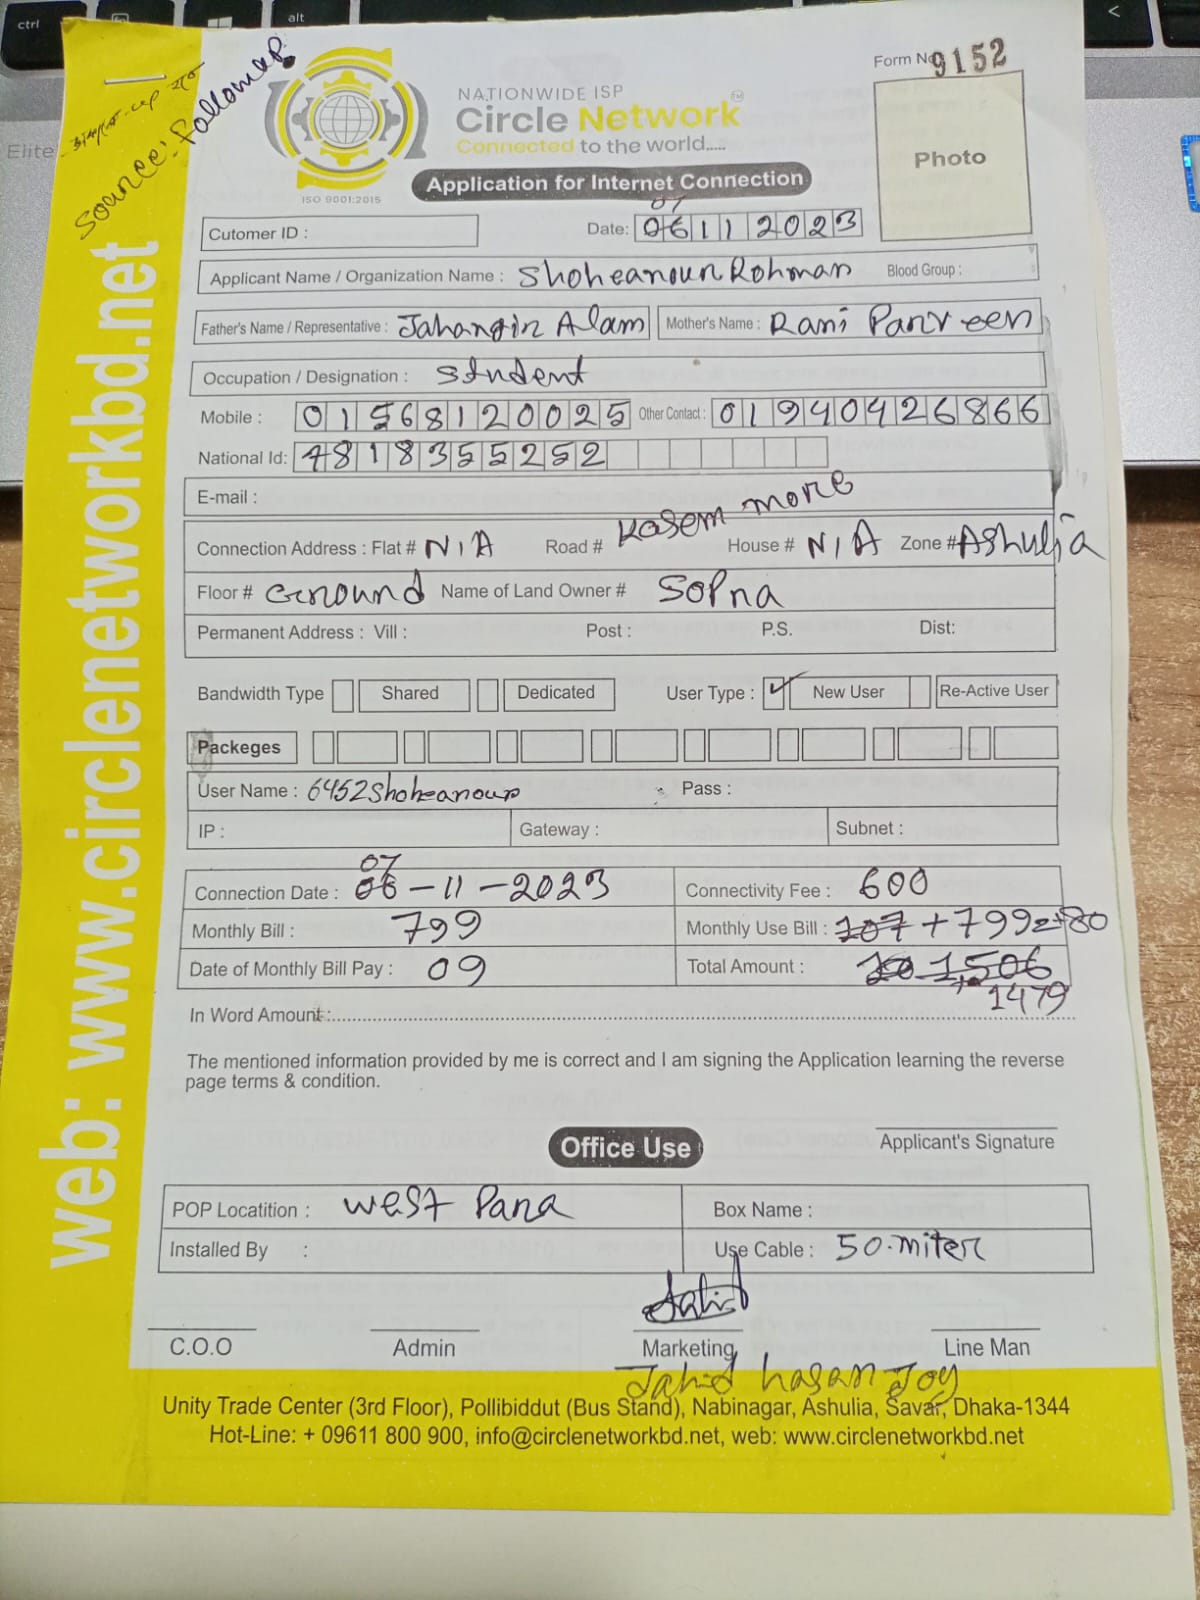 ctrl
alt
<
Elite
Source: Fallomer
Form No 9152
NATIONWIDE ISP
Circle Network TM
Connected to the world.....
ISO 9001:2015
Application for Internet Connection
Photo
07
Cutomer ID : Date: 06 11 2023
Applicant Name / Organization Name : Shoheanour Rohman Blood Group :
Father's Name / Representative : Jahangir Alam Mother's Name : Rani Parveen
Occupation / Designation : Student
Mobile : 01568120025 Other Contact : 01940426866
National Id: 7818355252
E-mail :
Connection Address : Flat # N/A Road # Kasem more House # N/A Zone # Ashulia
Floor # Ground Name of Land Owner # Sopna
Permanent Address : Vill : Post : P.S. Dist:
Bandwidth Type Shared Dedicated User Type : ✓ New User Re-Active User
Packeges
User Name : 6452Shoheanour Pass :
IP : Gateway : Subnet :
07
Connection Date : 06-11-2023 Connectivity Fee : 600
Monthly Bill : 799 Monthly Use Bill : 107 + 799 = +80
Date of Monthly Bill Pay : 09 Total Amount : 1506
1479
In Word Amount :
The mentioned information provided by me is correct and I am signing the Application learning the reverse
page terms & condition.
Applicant's Signature
Office Use
POP Locatition : West Para Box Name :
Installed By : Use Cable : 50.miter
Jahid
C.O.O Admin Marketing Line Man
Jahid hasan Joy
Unity Trade Center (3rd Floor), Pollibiddut (Bus Stand), Nabinagar, Ashulia, Savar, Dhaka-1344
Hot-Line: + 09611 800 900, info@circlenetworkbd.net, web: www.circlenetworkbd.net
web: www.circlenetworkbd.net